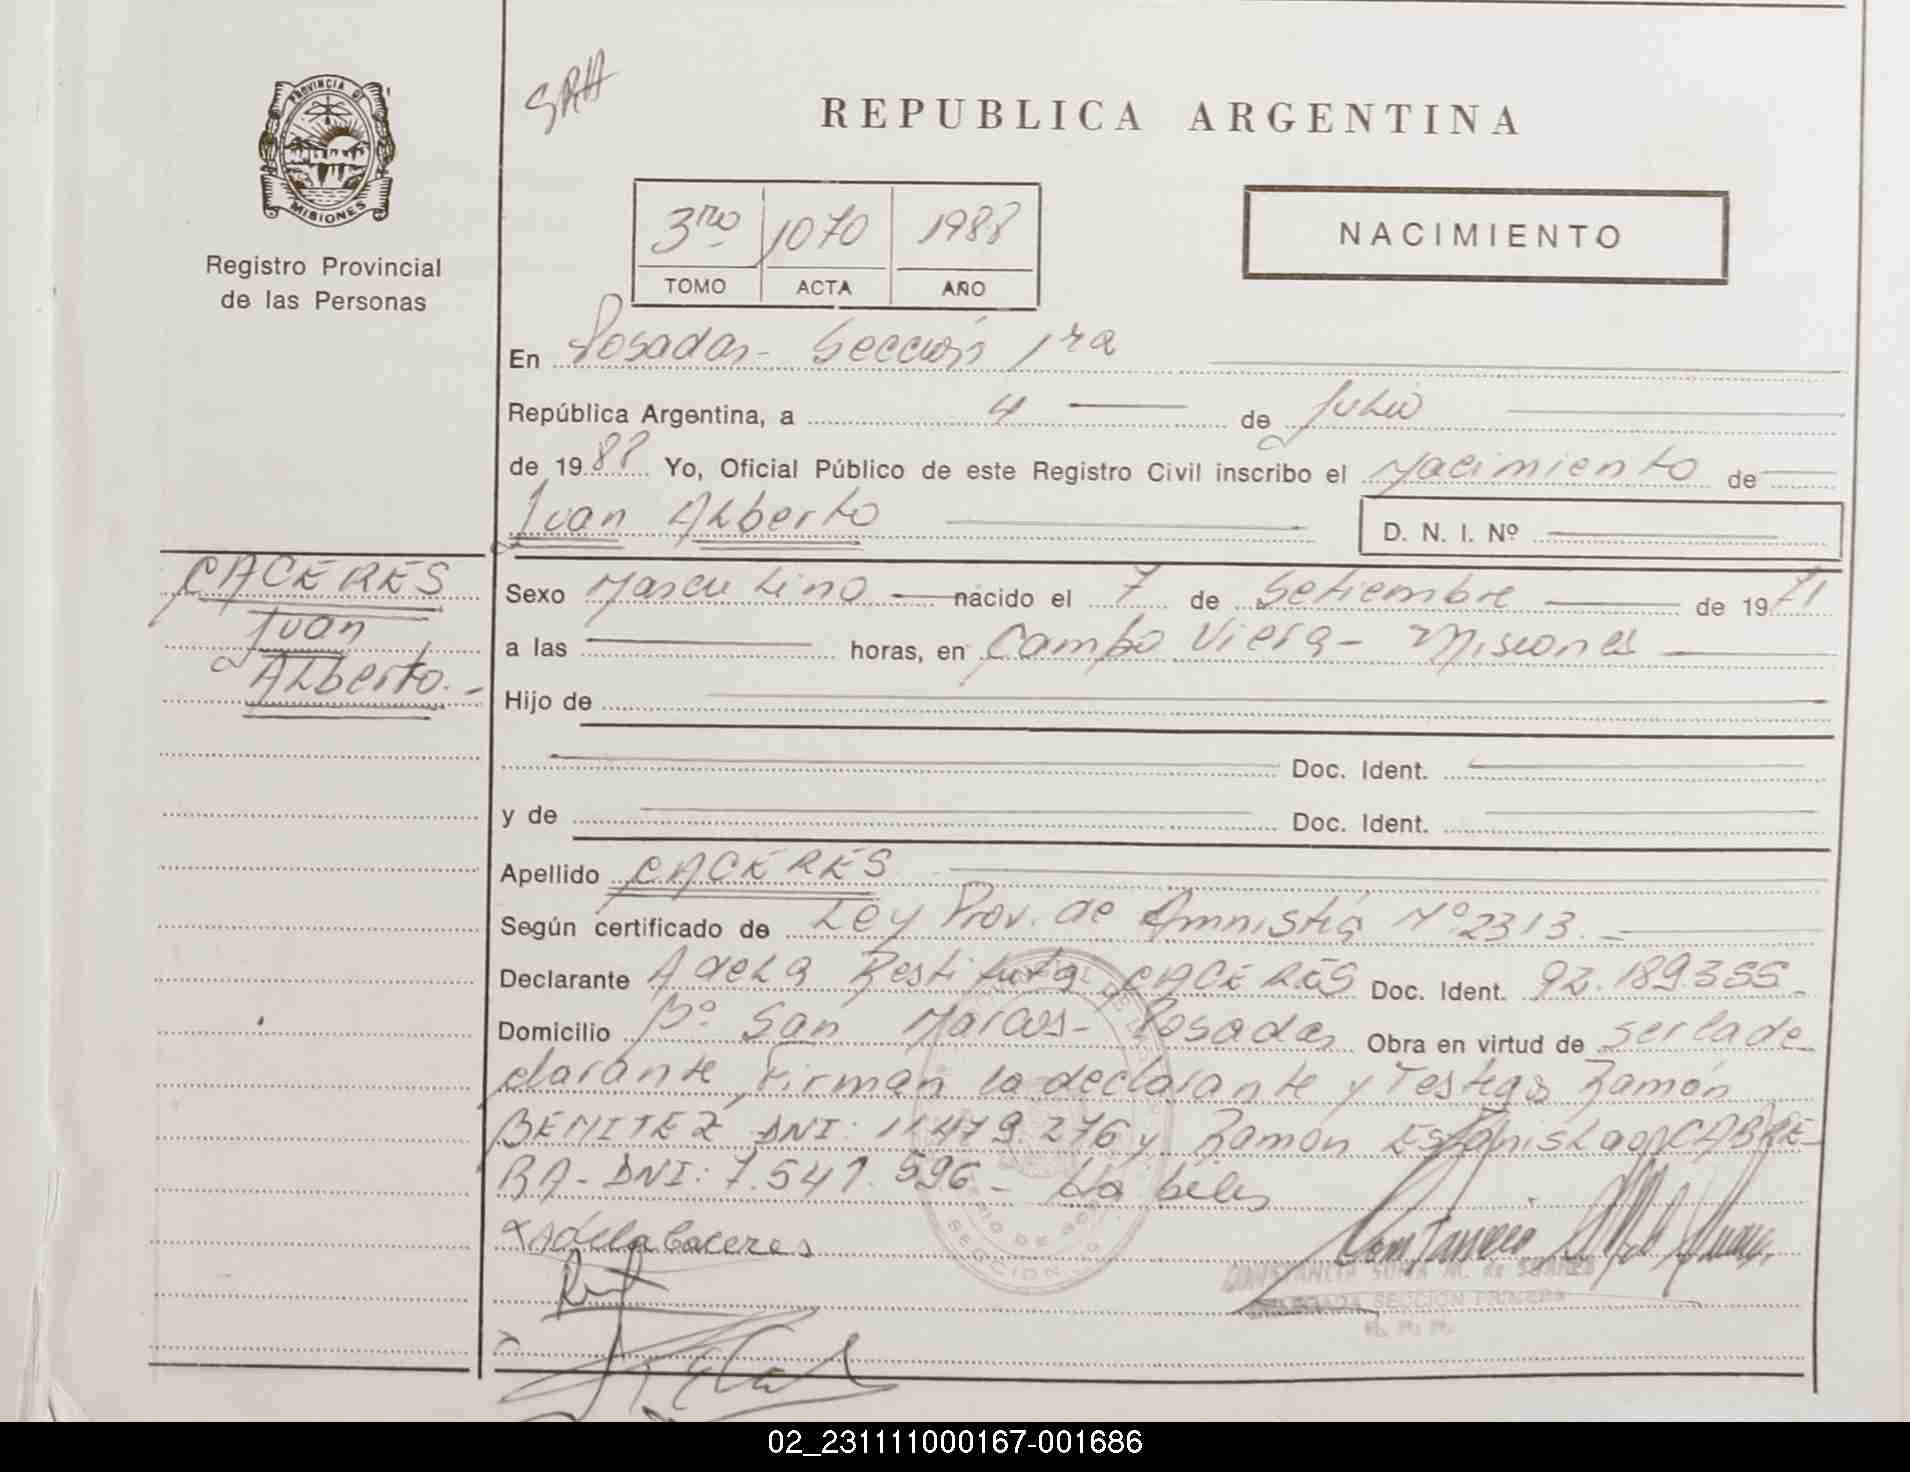 PROVINCIA DE
MISIONES
Registro Provincial
de las Personas
SRA
REPUBLICA ARGENTINA
3ro 1070 1988
TOMO ACTA AÑO
NACIMIENTO
En Posadas - Sección 1ra
República Argentina, a 4 de Julio
de 1988 Yo, Oficial Público de este Registro Civil inscribo el Nacimiento de
Juan Alberto
D. N. I. Nº
CACERES
Juan
Alberto.-
Sexo Masculino nacido el 7 de Setiembre de 1971
a las horas, en Campo Viera - Misiones
Hijo de
Doc. Ident.
y de Doc. Ident.
Apellido CACERES
Según certificado de Ley Prov. de Amnistía Nº 2313.-
Declarante Adela Restituta CACERES Doc. Ident. 92.189355-
Domicilio Bº San Marcos - Posadas Obra en virtud de ser la de
clarante, Firman la declarante y Testigos Ramón
BENITEZ DNI: 11.479.276 y Ramón Estanislao CABRE-
RA - DNI: 7.541.596 -
Adela Caceres
CONSTANCIA SONIA M. de SUAREZ
SECCION PRIMERA
02_231111000167-001686